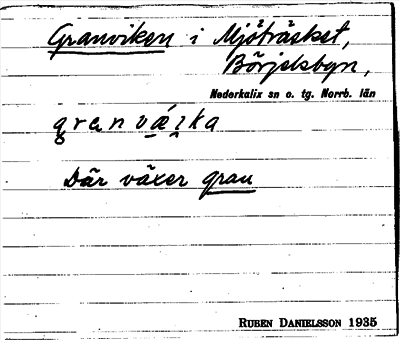 Granviken i Mjöträsket,
Börjelsbyn,
Nederkalix sn o. tg. Norrb. län
granvä́i̯ka
Där växer gran
RUBEN DANIELSSON 1935